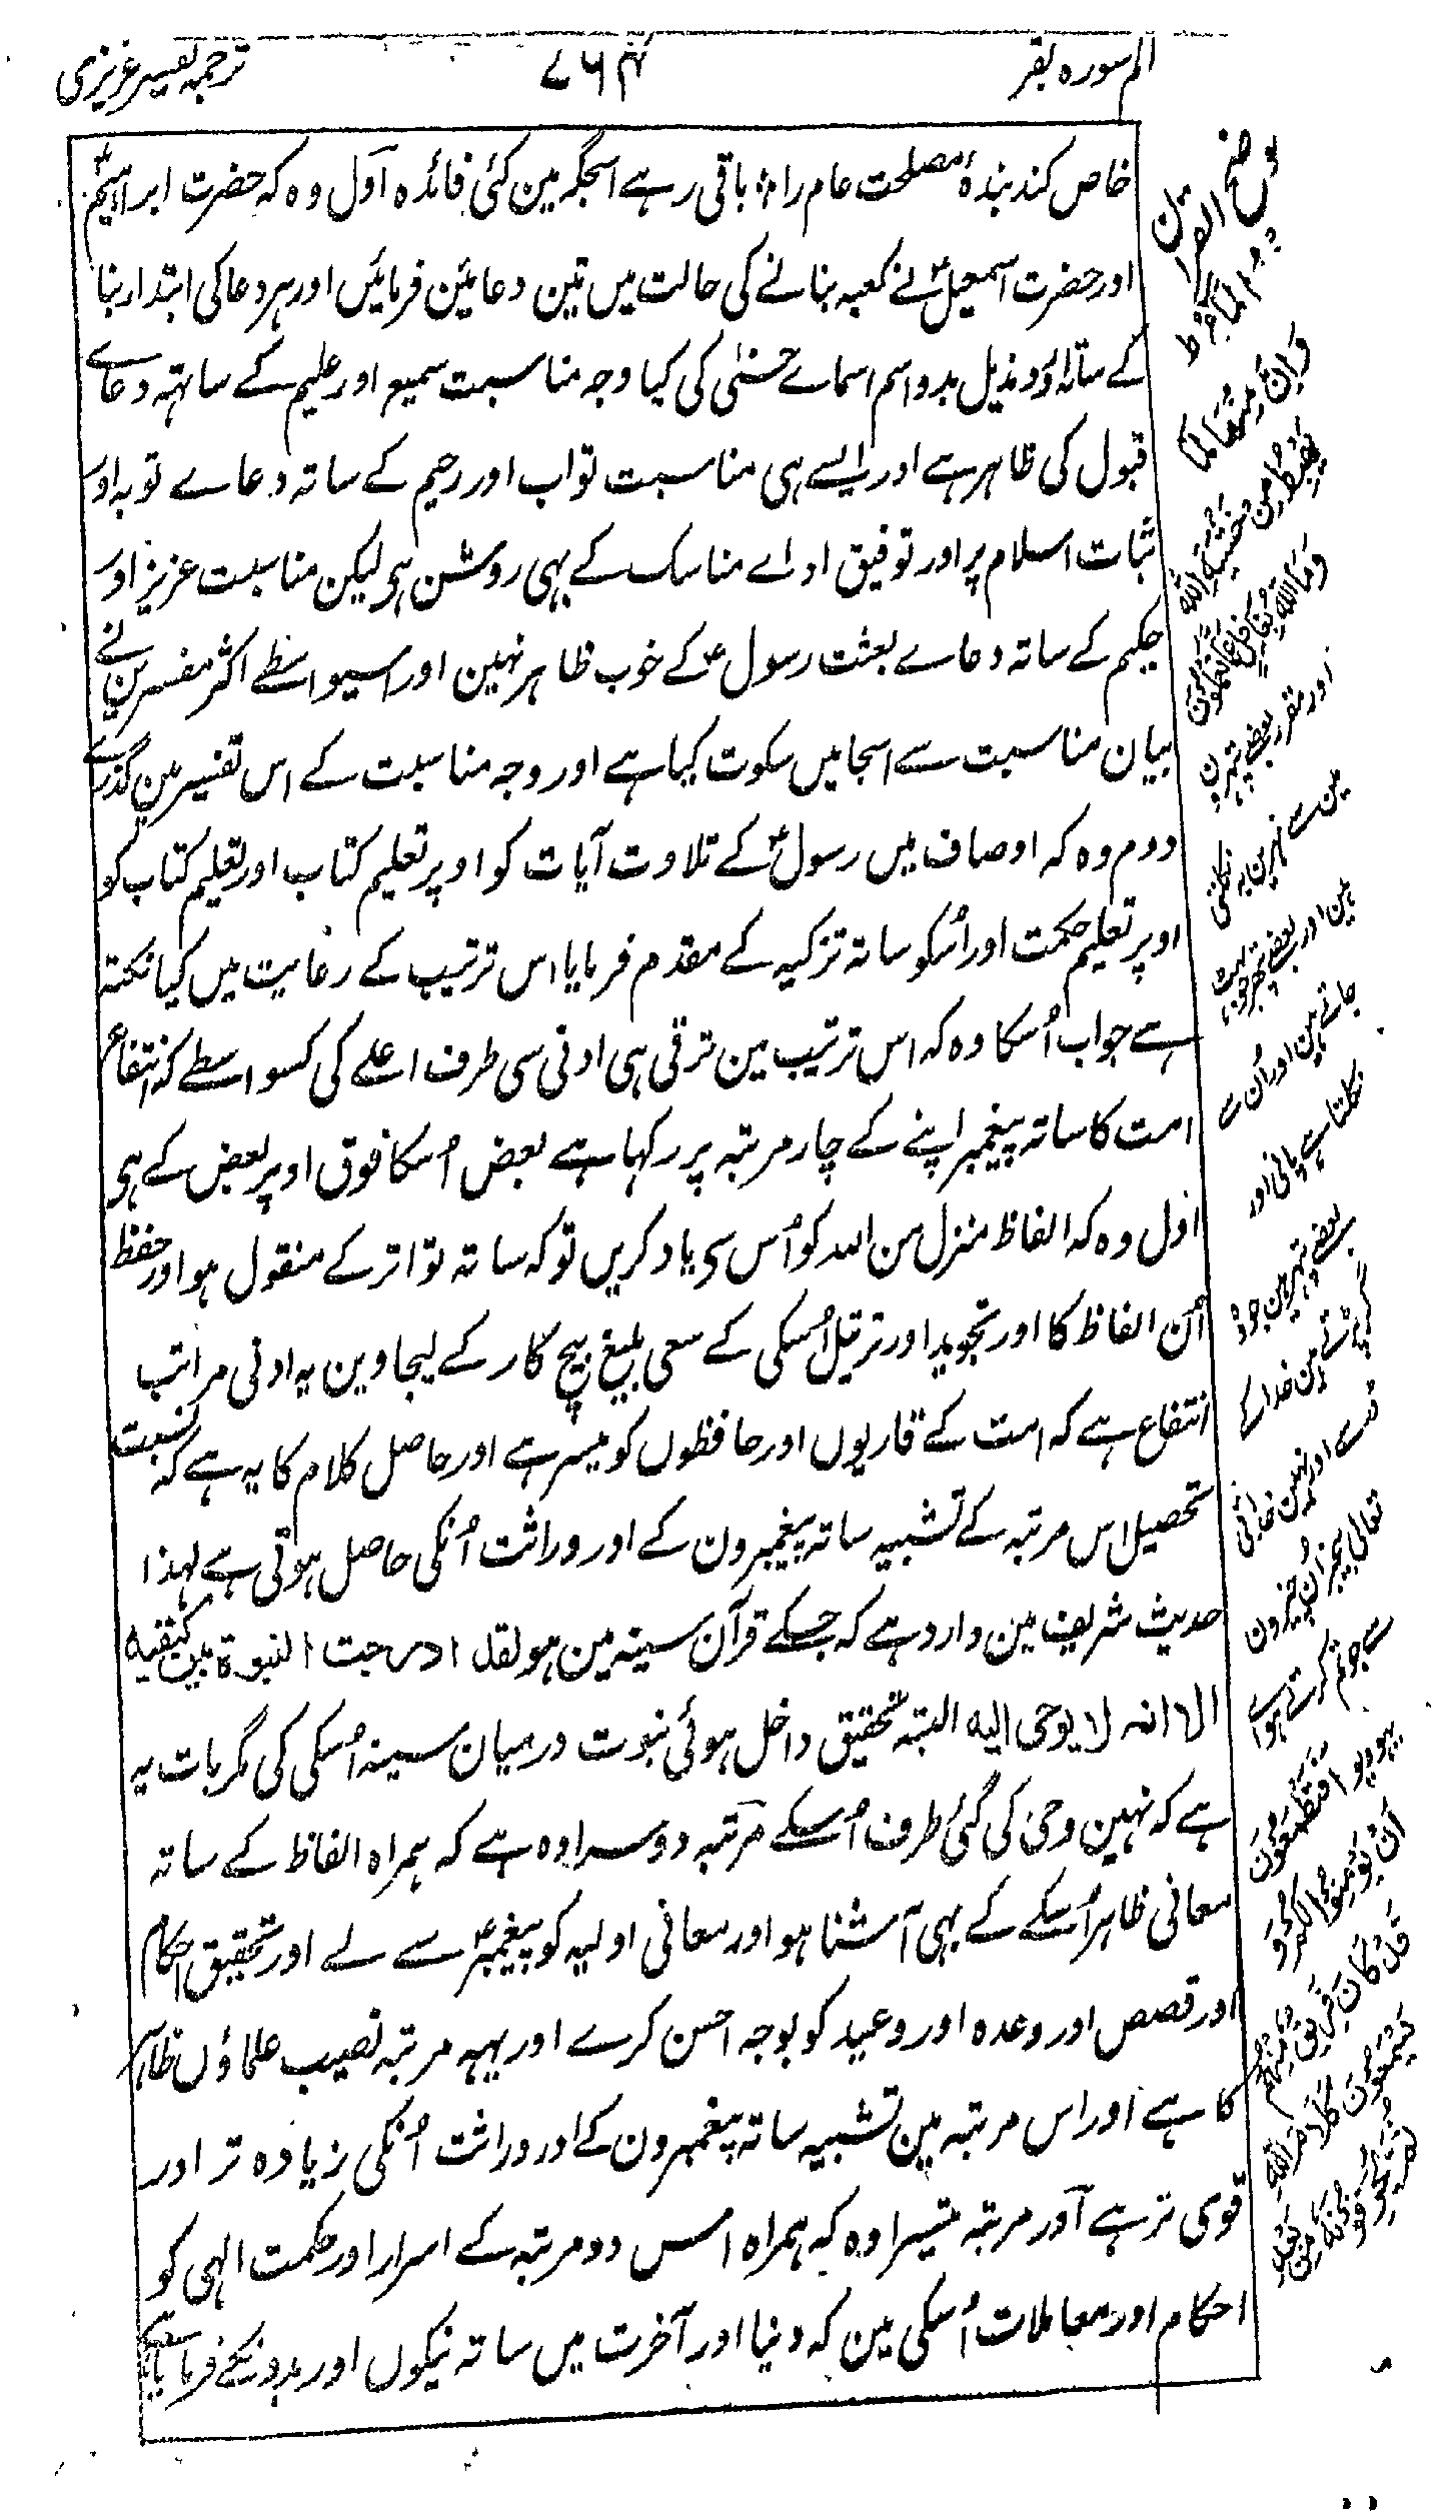 الم سورہ بقر
۷۶۴
ترجمہ تفسیر عزیزی
خاص کند بندۂ مصلحت عام را؛ باقی رہے اسجگہ مین کئی فائدہ اول وہ کہ حضرت ابراہیمؑ
اور حضرت اسمعیلؑ نے کعبہ بنانے کی حالت میں تین دعائین فرمائیں اور ہر دعا کی ابتدا ربنا
کے ساتہ اور تذییل بدو اسم اسماے حسنٰی کی کیا وجہ مناسبت سمیع اور علیم کے ساتھہ دعاے
قبول کی ظاہر ہے اور ایسے ہی مناسبت تواب اور رحیم کے ساتہ دعاے توبہ اور
ثبات اسلام پر اور توفیق اداے مناسک کے بہی روشن ہی لیکن مناسبت عزیز اور
حکیم کے ساتہ دعاے بعثت رسولؐ کے خوب ظاہر نہین اور اسیواسطے اکثر مفسرین نے
بیان مناسبت سے اسجا میں سکوت کیا ہے اور وجہ مناسبت کے اس تفسیر مین گذرے
دوم وہ کہ اوصاف میں رسولؐ کے تلاوت آیات کو اوپر تعلیم کتاب اور تعلیم کتاب کو
اوپر تعلیم حکمت اور اُسکو ساتہ تزکیہ کے مقدم فرمایا اس ترتیب کے رعایت میں کیا نکتہ
ہے جواب اُسکا وہ کہ اس ترتیب مین ترقی ہی ادنی سی طرف اعلے کی کسواسطے کہ انتفاع
امت کا ساتہ پیغمبر اپنے کے چار مرتبہ پر رکہا ہے بعض اُسکا فوق اوپر بعض کے ہی
اول وہ کہ الفاظ منزل من اللہ کو اُس سی یاد کریں تو کہ ساتہ تواتر کے منقول ہو اور حفظ
اُن الفاظ کا اور تجوید اور ترتیل اُسکی کے سعی بلیغ بیچ کار کے لیجاوین یہ ادنی مراتب
انتفاع ہے کہ امت کے قاریوں اور حافظوں کو میسر ہے اور حاصل کلام کا یہ ہے کہ نسبت
تحصیل اس مرتبہ کے تشبیہ ساتہ پیغمبرون کے اور وراثت اُنکی حاصل ہوتی ہے لہذا
حدیث شریف مین وارد ہے کہ جسکے قرآن سینہ مین ہو لقد ادرجت النبوۃ بین کتفیہ
الا انہ لا یوحی الیه البتہ تحقیق داخل ہوئی نبوت درمیان سینہ اُسکی کی مگر بات یہ
ہے کہ نہین وحی کی گئی طرف اُسکے مرتبہ دوسرا وہ ہے کہ ہمراہ الفاظ کے ساتہ
معانی ظاہر اُسکے کے بہی آشنا ہو اور معانی اولیہ کو پیغمبرؐ سے لے اور تحقیق احکام
اور قصص اور وعدہ اور وعید کو بوجہ احسن کرے اور یہہ مرتبہ نصیب علماؤں ظاہر
کا ہے اور اس مرتبہ مین تشبیہ ساتہ پیغمبرون کے اور وراثت اُنکی زیادہ تر اور
قوی تر ہے اور مرتبہ تیسرا وہ کہ ہمراہ اس دو مرتبہ کے اسرار اور حکمت الہی کو
احکام اور معاملات اُسکی مین کہ دنیا اور آخرت میں ساتہ نیکوں اور بدونکے فرمایا
توضیح القرآن
وَاِنَّ مِنْهَا لَمَا
يَهْبِطُ مِنْ خَشْيَةِ اللّٰهِ
وَمَا اللّٰهُ بِغَافِلٍ عَمَّا تَعْمَلُوْنَ
اور مقرر بعضے پتہرون
مین سے نہرین بہ نکلتی
ہین اور بعضے
جاتے ہین اور اُن سے
نکلتا ہے پانی اور
بعضے وہ ہین جو
گر پڑتے ہین خدا کے
ڈر سے اور نہین خدا
تعالی بیخبر اُن چیزون
سے جو تم کرتے ہو
اَفَتَطْمَعُوْنَ
اَنْ يُّؤْمِنُوْا لَكُمْ وَ
قَدْ كَانَ فَرِيْقٌ مِّنْهُمْ
يَسْمَعُوْنَ كَلَامَ اللّٰهِ
ثُمَّ يُحَرِّفُوْنَهٗ مِنْ بَعْدِ